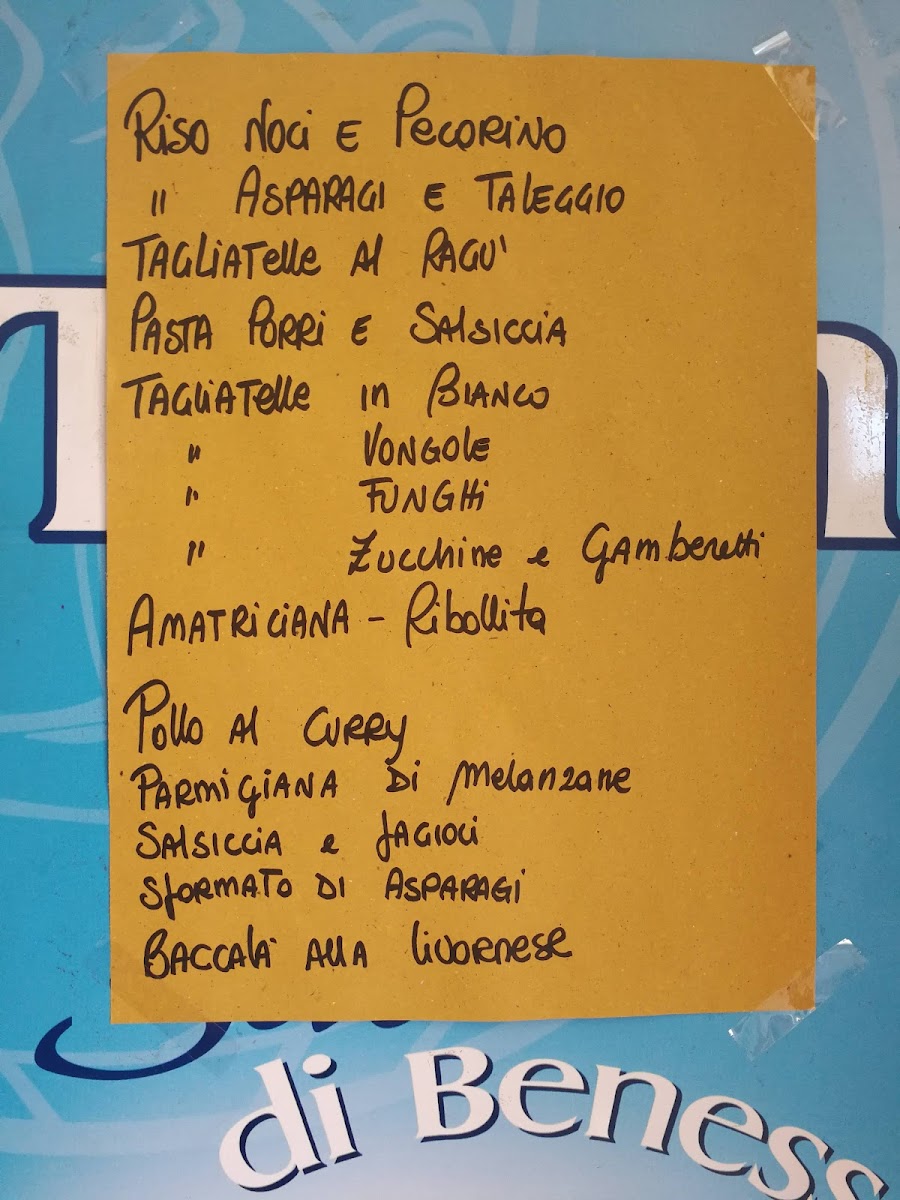 RISO NOCI E PECORINO
" ASPARAGI E TALEGGIO
TAGLIATElle Al RAGU'
PASTA PORRI E SAlSICCIA
TAGLIATElle in BIANCO
" VONGOLE
" FUNGHi
" Zucchine e Gamberetti
AMATRICIANA - Ribollita
Pollo Al CURRY
PARMIGIANA Di Melanzane
SAlSICCIA e fAGIOLI
SfORMATO DI ASPARAGI
BACCALA' AllA livornese
di Beness